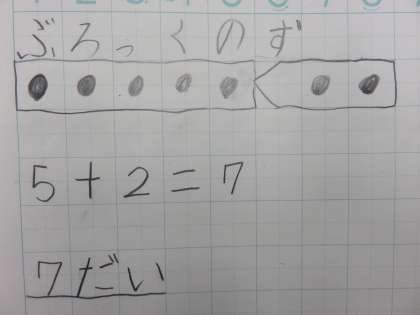 ぶろっくのず
5+2=7
7だい